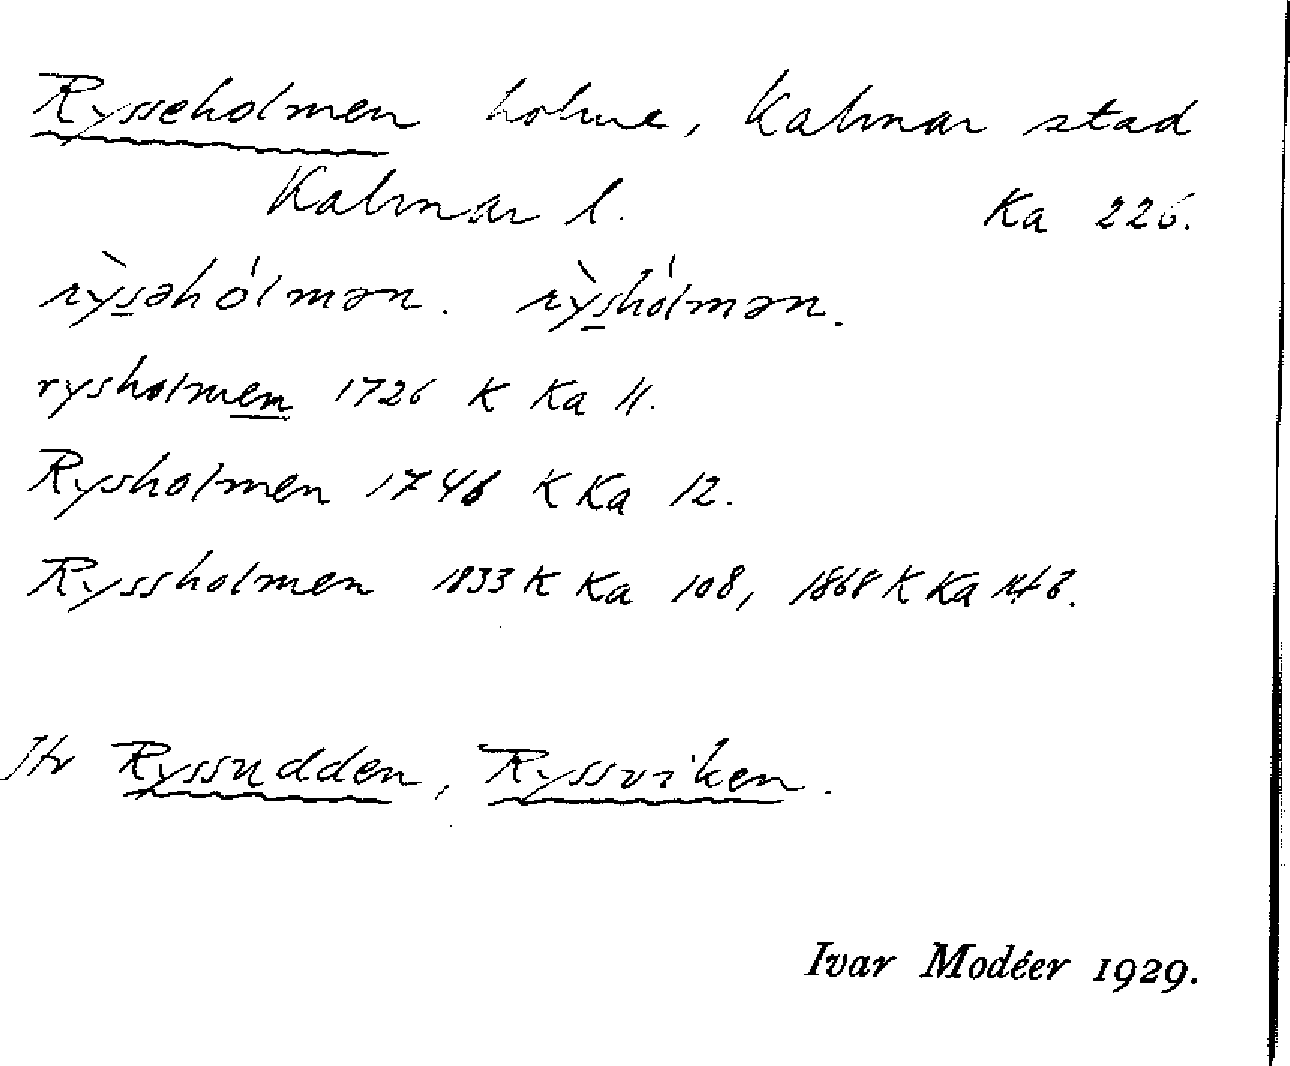 Rysseholmen holme, Kalmar stad
Kalmar l. Ka 226.
rỳsəhólmən. rỳshólmən.
rysholmem 1726 K Ka 11.
Rysholmen 1746 K Ka 12.
Ryssholmen 1833 K Ka 108, 1868 K Ka 143.
Jfr Ryssudden, Ryssviken.
Ivar Modéer 1929.